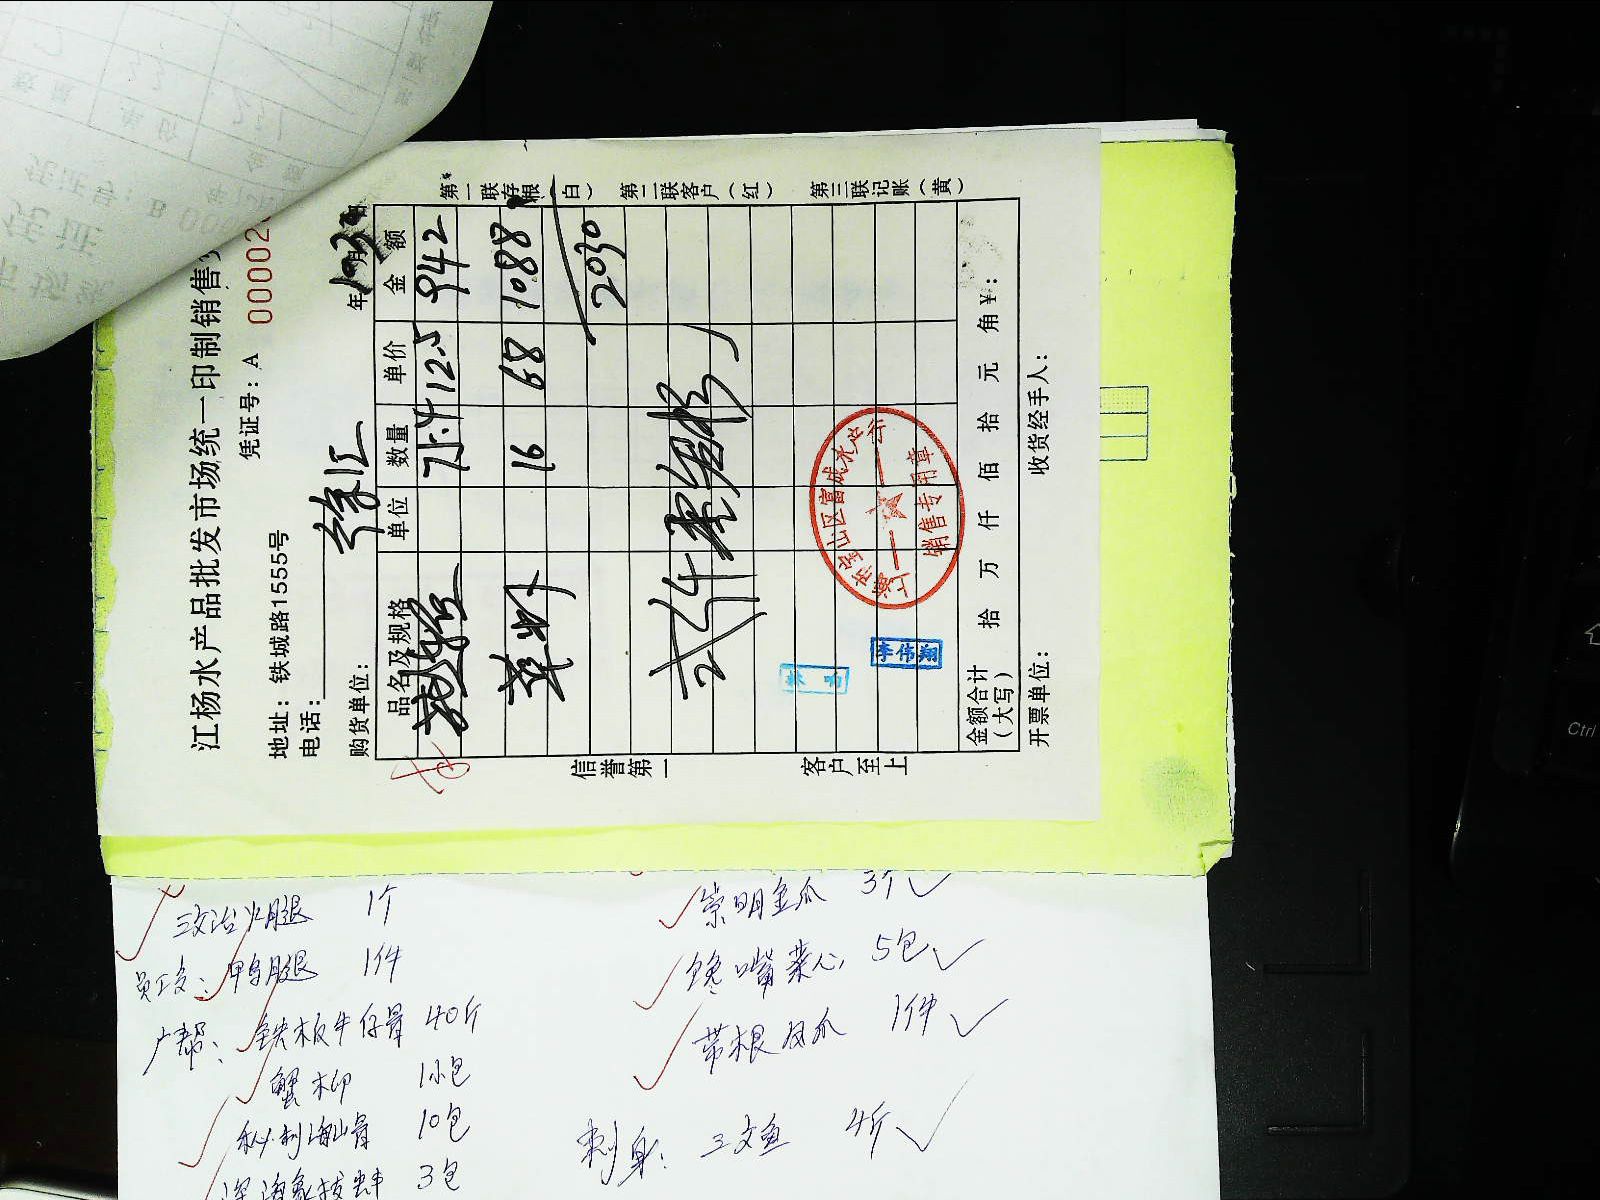 江杨水产品批发市场统一印制销售
凭证号：A 00002
地址：铁城路1555号
电话：
购货单位：徐汇
年10月30日
品名及规格 单位 数量 单价 金额
75.4 12.5 942
草虾 16 68 1088
2030
贰仟零叁拾
上海市宝山区富成水产行
销售专用章
李伟翔
金额合计
（大写）
拾 万 仟 佰 拾 元 角 ¥：
开票单位： 收货经手人：
第一联存根（白） 第二联客户（红） 第三联记账（黄）
信誉第一 客户至上
三文治火腿 1个
员工食：鸭腿 1件
广帮：铁板牛仔骨 40斤
蟹柳 1小包
秘制海山骨 10包
深海象拔蚌 3包
崇明金瓜 3个
馋嘴菜心 5包
带根凤爪 1件
刺身：三文鱼 4斤
Ctrl